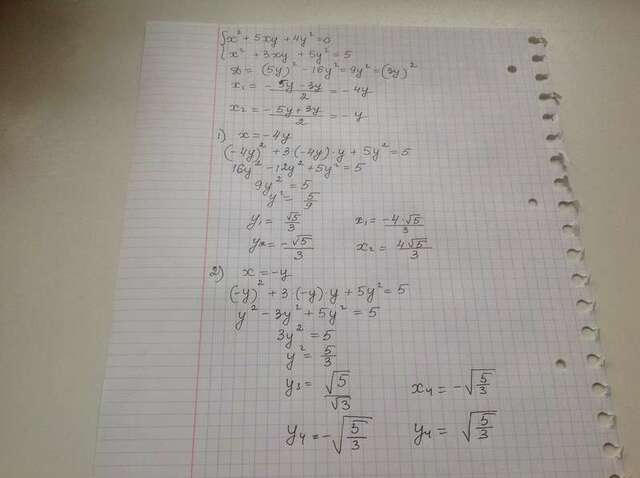 {x² + 5xy + 4y² = 0
{x² + 3xy + 5y² = 5
D = (5y)² - 16y² = 9y² = (3y)²
x₁ = -5y - 3y / 2 = -4y
x₂ = -5y + 3y / 2 = -y
1) x = -4y
(-4y)² + 3·(-4y)·y + 5y² = 5
16y² - 12y² + 5y² = 5
9y² = 5
y² = 5/9
y₁ = √5/3 x₁ = -4·√5/3
y₂ = -√5/3 x₂ = 4√5/3
2) x = -y
(-y)² + 3·(-y)·y + 5y² = 5
y² - 3y² + 5y² = 5
3y² = 5
y² = 5/3
y₃ = √5/√3 x₄ = -√5/3
y₄ = -√5/3 y₄ = √5/3